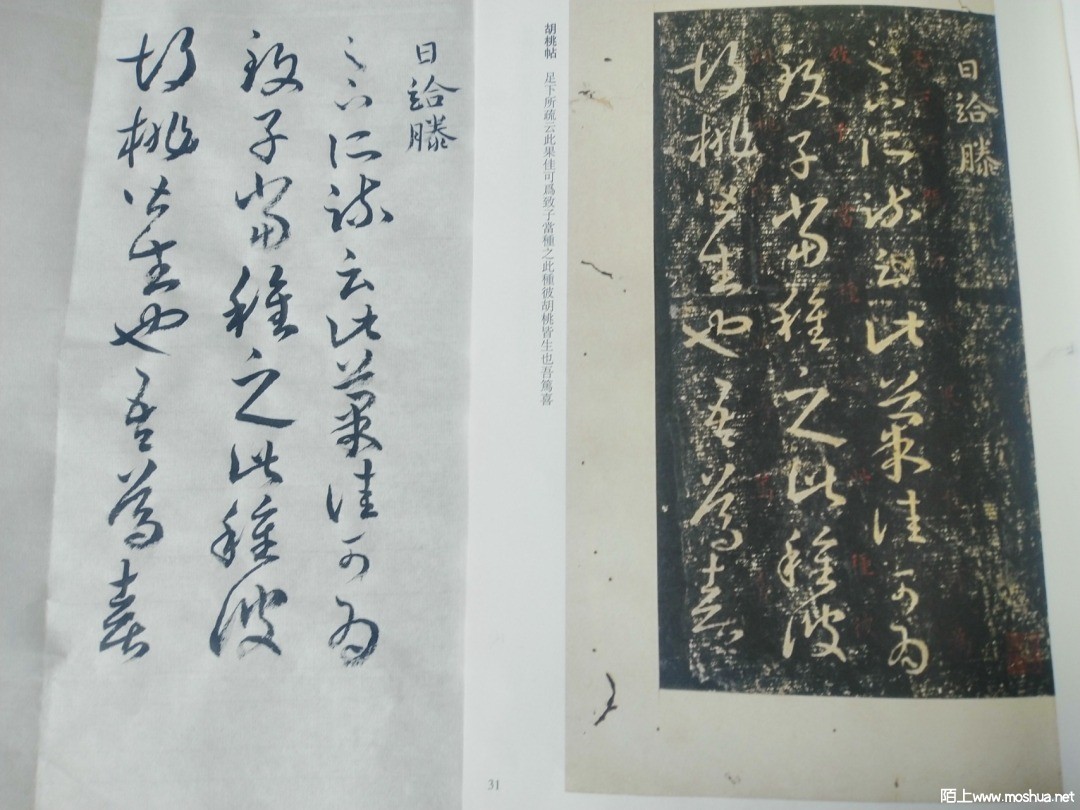 日給滕
足下所疏云此果佳可為
致子當種之此種彼
胡桃皆生也吾篤喜
胡桃帖 足下所疏云此果佳可爲致子當種之此種彼胡桃皆生也吾篤喜
31
日給滕
足下所疏云此果佳可為
致子當種之此種彼
胡桃皆生也吾篤喜
陌上www.moshua.net